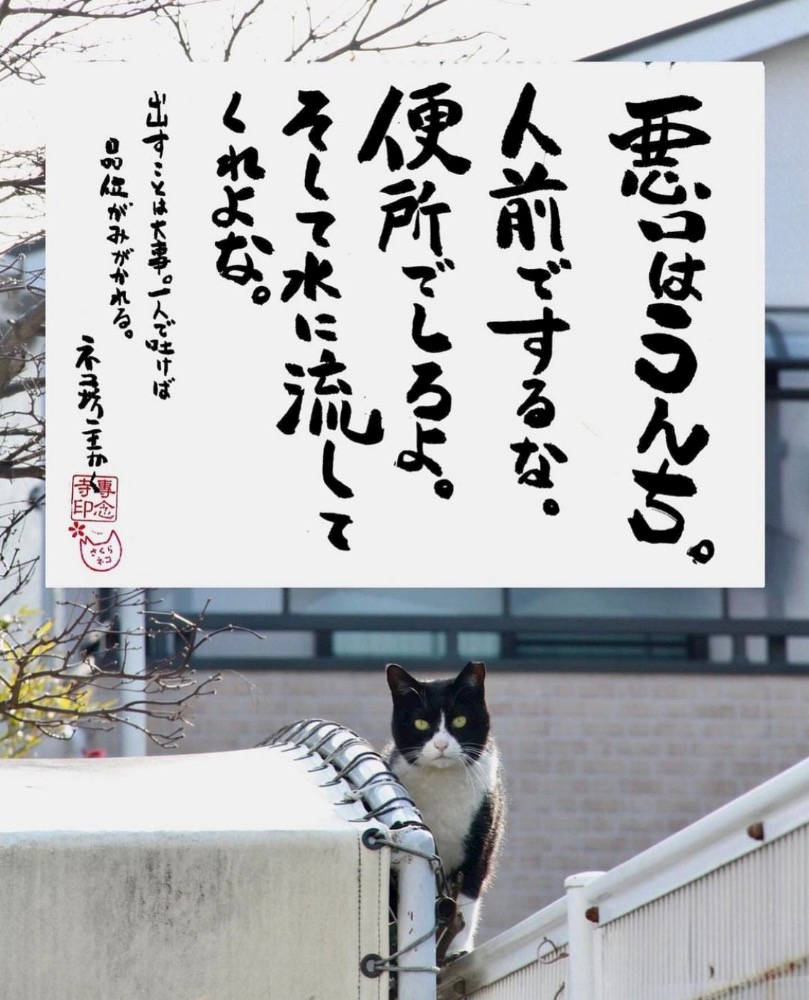 悪口はうんち。
人前でするな。
便所でしろよ。
そして水に流して
くれよな。
出すことは大事。一人で吐けば
品位がみがかれる。
ネコ坊主かく
專念
寺印
さくら
ネコ